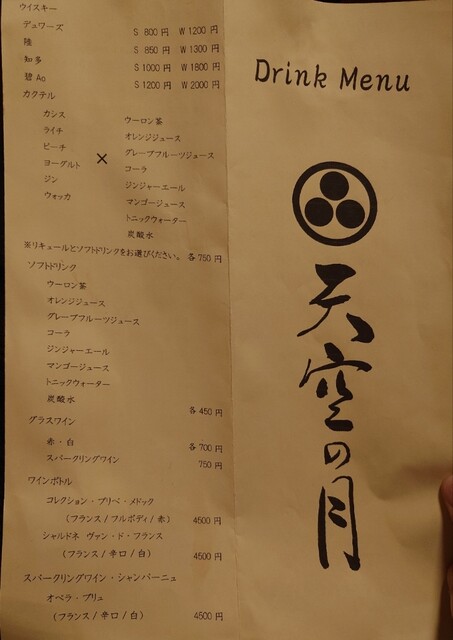 ウイスキー
デュワーズ S 800円 W 1200円
陸 S 850円 W 1300円
知多 S 1000円 W 1800円
碧Ao S 1200円 W 2000円
カクテル
カシス ウーロン茶
ライチ オレンジジュース
ピーチ グレープフルーツジュース
ヨーグルト × コーラ
ジン ジンジャーエール
ウォッカ マンゴージュース
トニックウォーター
炭酸水
※リキュールとソフトドリンクをお選びください。 各750円
ソフトドリンク
ウーロン茶
オレンジジュース
グレープフルーツジュース
コーラ
ジンジャーエール
マンゴージュース
トニックウォーター
炭酸水
各450円
グラスワイン
赤・白 各700円
スパークリングワイン 750円
ワインボトル
コレクション・プリベ・メドック
(フランス/フルボディ/赤) 4500円
シャルドネ ヴァン・ド・フランス
(フランス/辛口/白) 4500円
スパークリングワイン・シャンパーニュ
オペラ・ブリュ
(フランス/辛口/白) 4500円
Drink Menu
天空の月